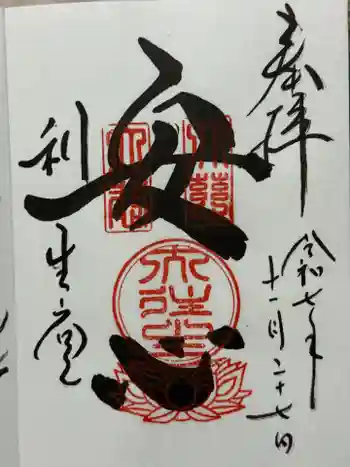 奉拝
令和七年
十一月二十七日
安心
利生